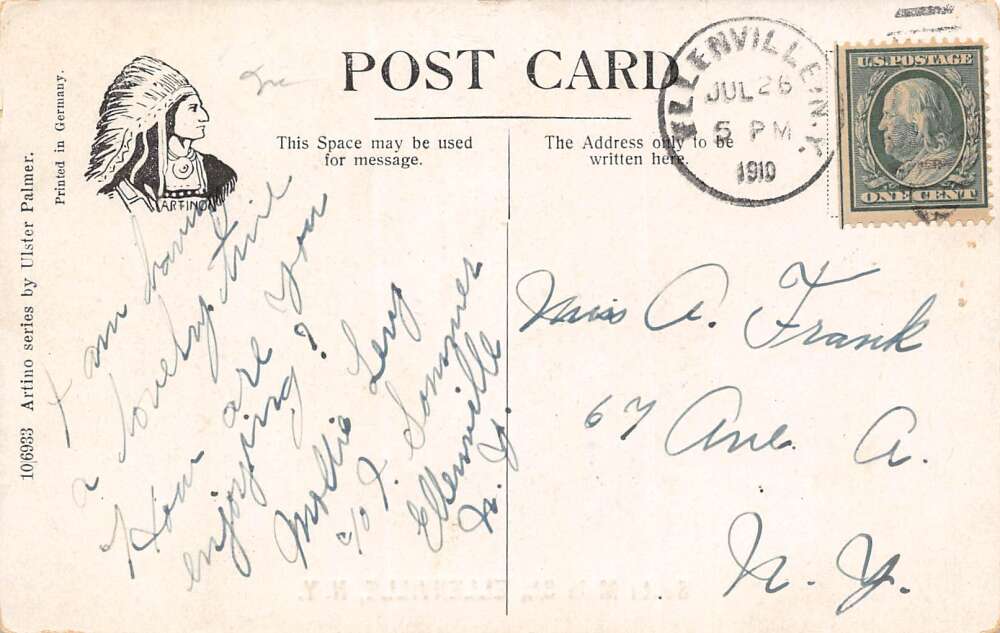 POST CARD
This Space may be used
for message.
The Address only to be
written here.
ELLENVILLE, N.Y.
JUL 26
5 PM
1910
U.S. POSTAGE
ONE CENT
ARTINO
Printed in Germany.
106933 Artino series by Ulster Palmer.
I am having
a lovely time
How are you
enjoying?
Mollie Levy
c/o I. Sommer
Ellenville
N. Y.
Miss A. Frank
67 Ave. A.
N. Y.
ELLENVILLE, N.Y.